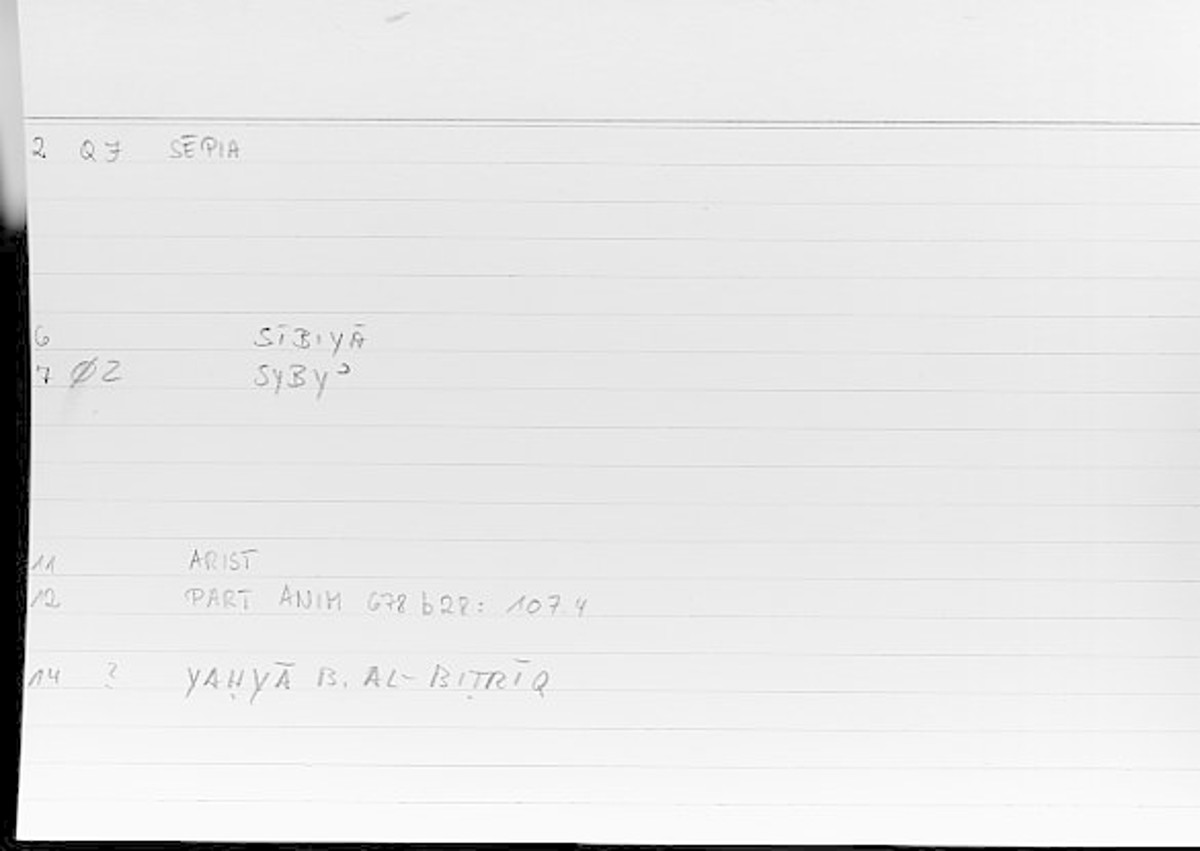 2 Q7 SĒPIA
6 SĪBIYĀ
7 Ø2 SYBYʾ
11 ARIST
12 PART ANIM 678 b28: 107.4
14 ? YAḤYĀ B. AL-BIṬRĪQ